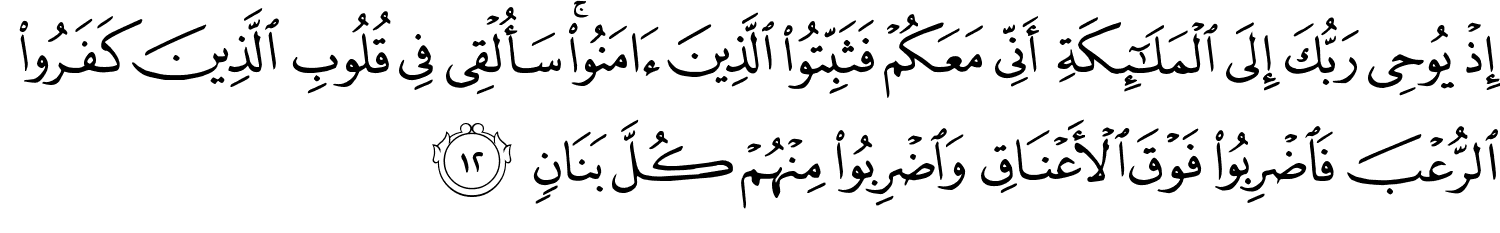 إِذْ يُوحِى رَبُّكَ إِلَى ٱلْمَلَـٰٓئِكَةِ أَنِّى مَعَكُمْ فَثَبِّتُوا۟ ٱلَّذِينَ ءَامَنُوا۟ ۚ سَأُلْقِى فِى قُلُوبِ ٱلَّذِينَ كَفَرُوا۟
ٱلرُّعْبَ فَٱضْرِبُوا۟ فَوْقَ ٱلْأَعْنَاقِ وَٱضْرِبُوا۟ مِنْهُمْ كُلَّ بَنَانٍ ١٢